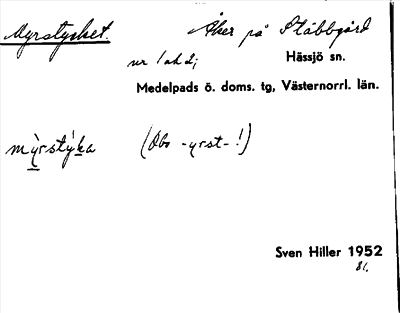 Myrstycket. Åker på Stäbbgård
nr 1 ok 2;
Hässjö sn.
Medelpads ö. doms. tg, Västernorrl. län.
mỳrstýka (Obs -yrst- !)
Sven Hiller 1952
81.